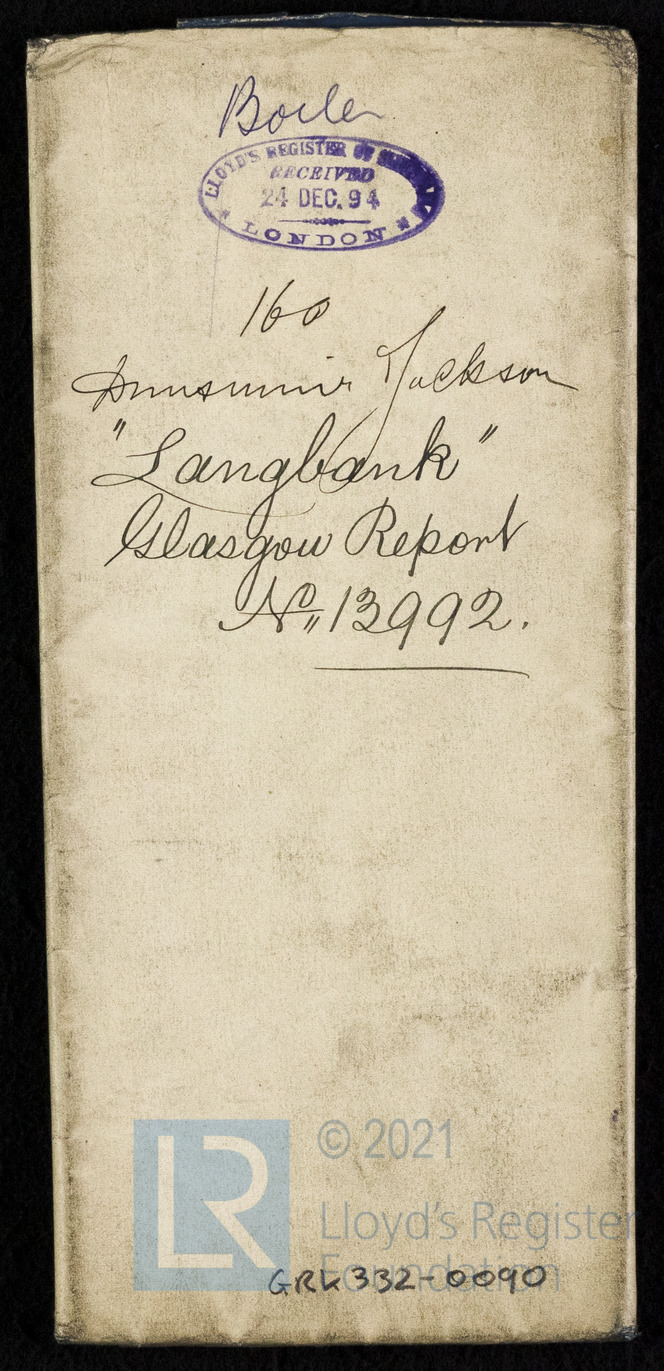 Boiler
LLOYD'S REGISTER OF
RECEIVED
24 DEC. 94
LONDON
160
Dunsmuir & Jackson
"Langbank"
Glasgow Report
No 13992.
LR
© 2021
Lloyd's Register
Foundation
GRK 332-0090